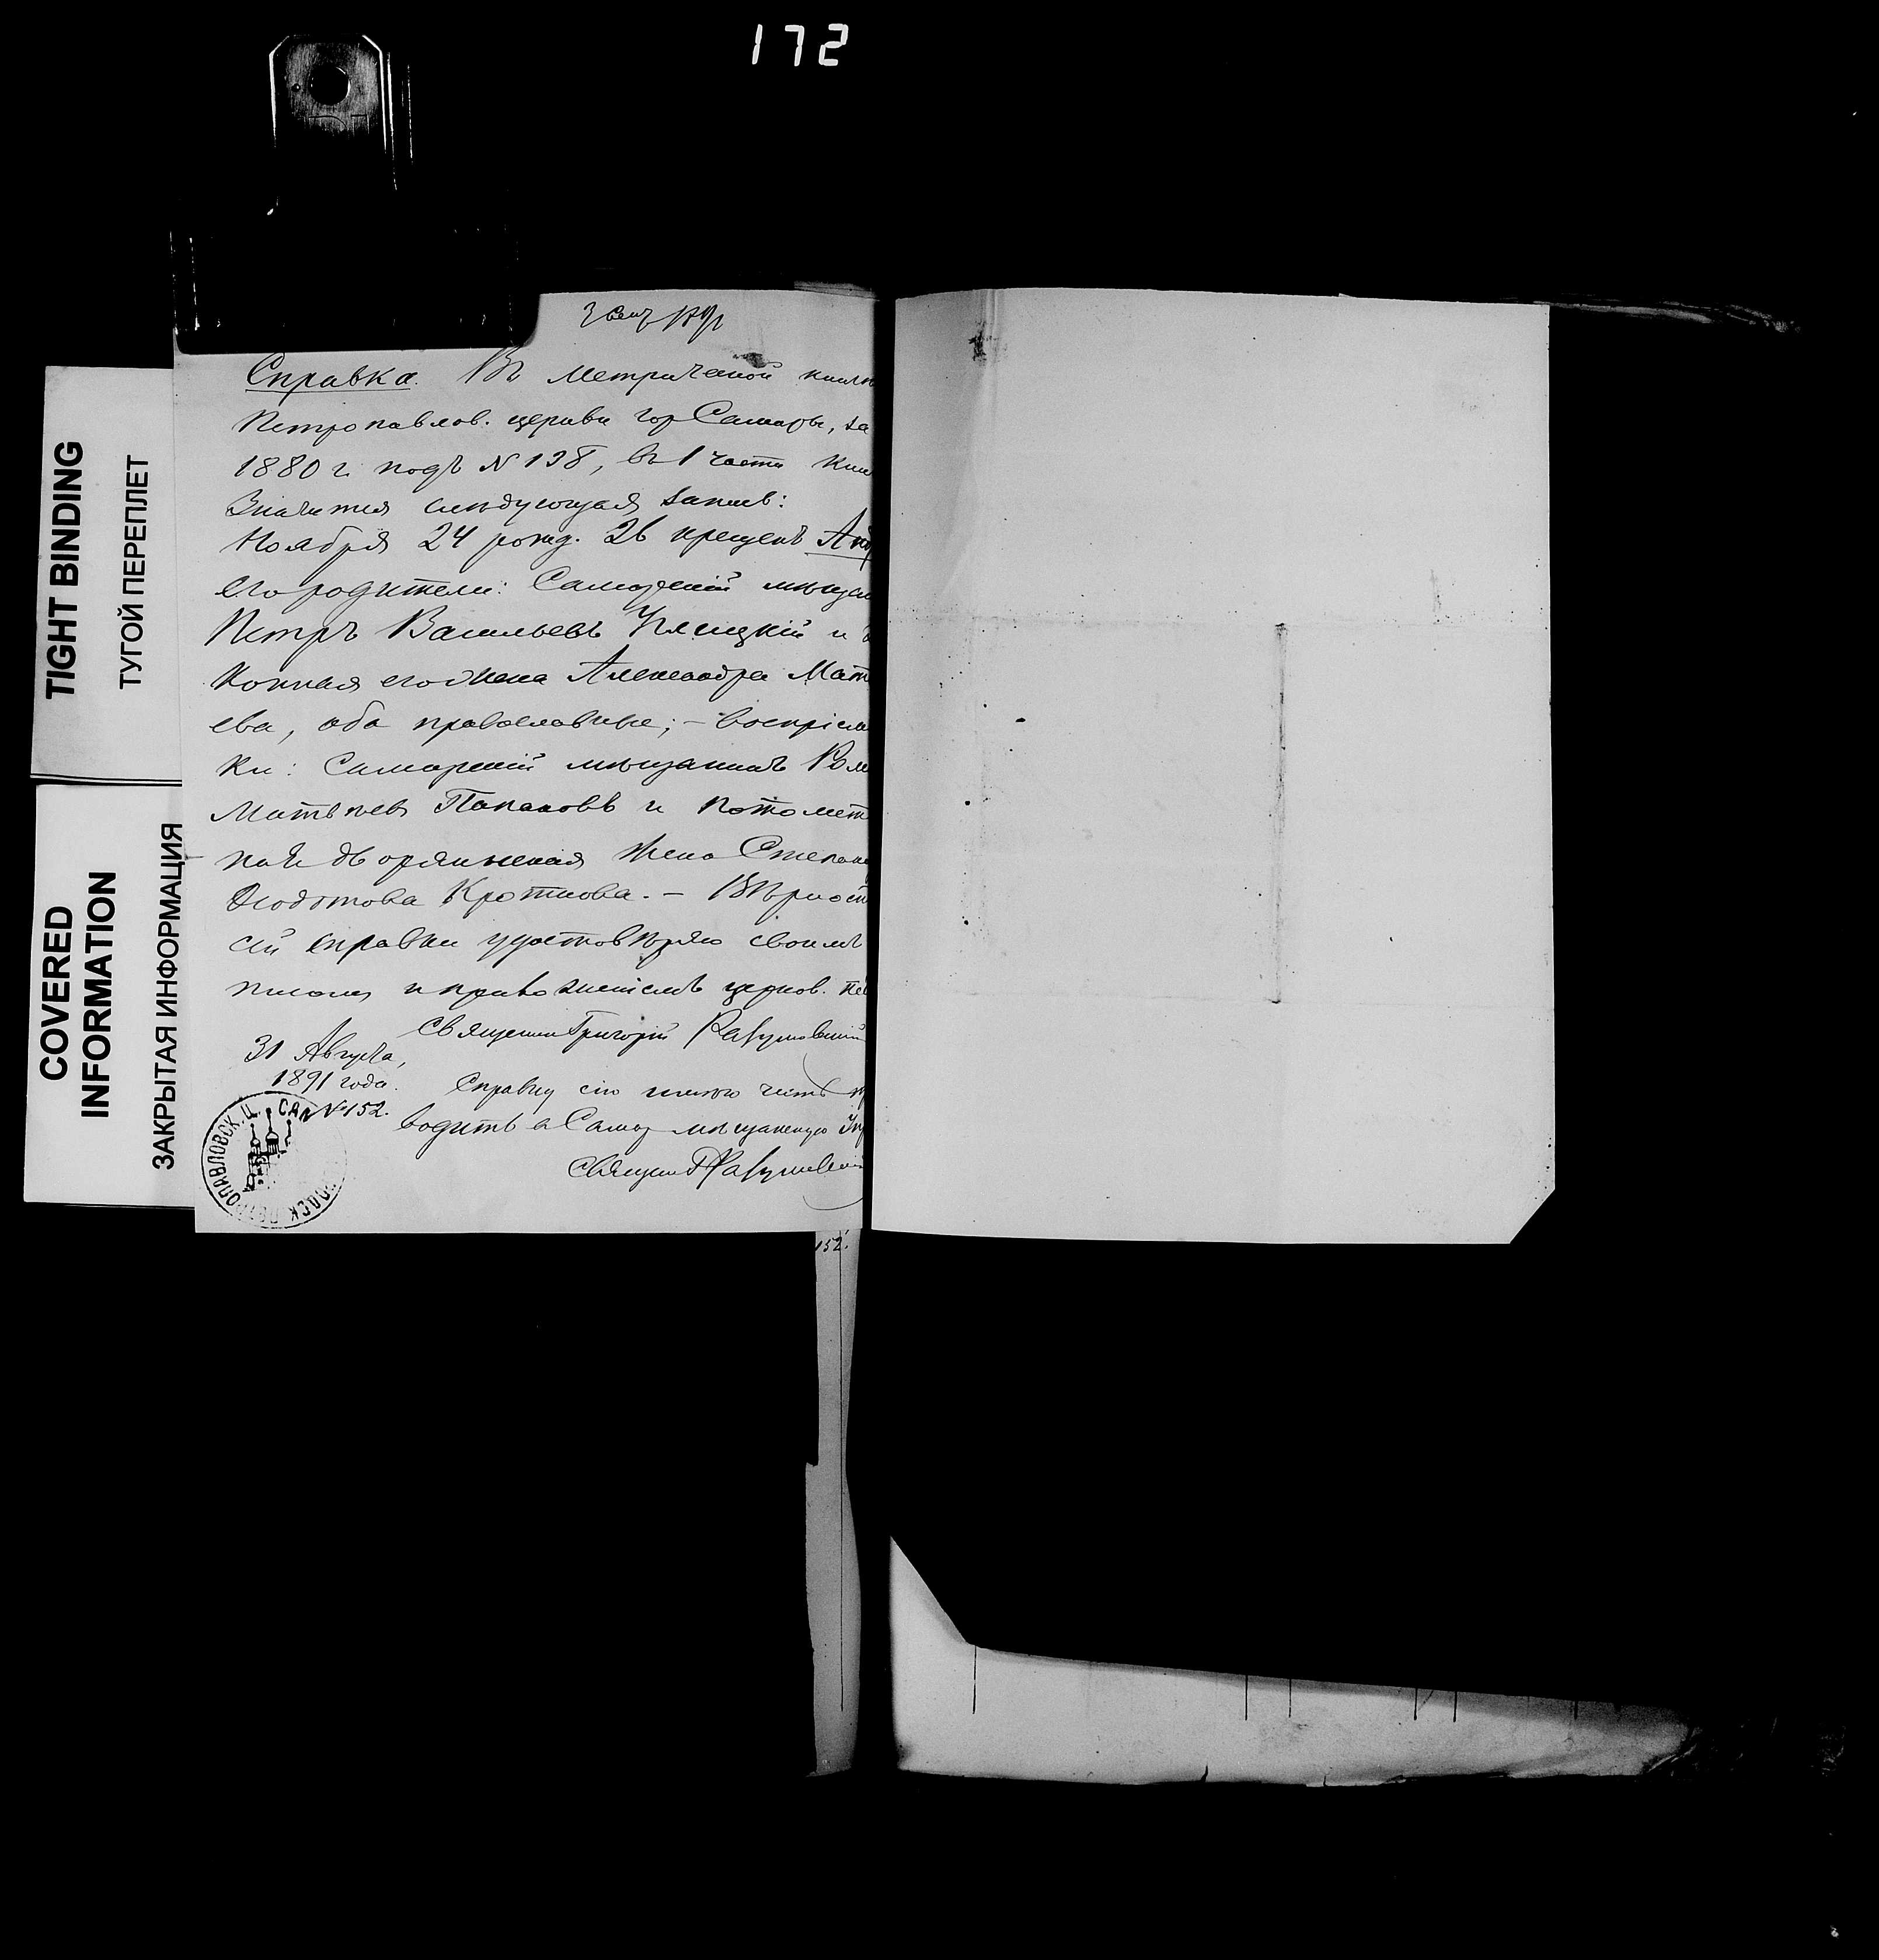 172
TIGHT BINDING
ТУГОЙ ПЕРЕПЛЕТ
COVERED
INFORMATION
ЗАКРЫТАЯ ИНФОРМАЦИЯ
Справка. Въ метрической книг
Петропавлов. церкви гор Самары, за
1880 г. подъ №138, въ 1 части кни
значится слѣдующая запись:
Ноября 24 рожд. 26 крещенъ Анд
его родители: Самарскій мѣщан
Петръ Васильевъ и
конная его жена Александра Мат
ева, оба православные; – воспріем
ки: Самарскій мѣщанинъ Ром
Матвѣевъ и потомст
ная дворянская жена Степан
Ѳеодотова Кроткова. – Вѣрност
сей справки удостовѣряю своимъ
и приложеніемъ церков. пе
Священник Григорій Разумовскій
31 Августа,
1891 года.
№152.
Справку сію имѣю честь
водить в Самар мѣщанскую Упр
Священ Г Разумовскі
152.